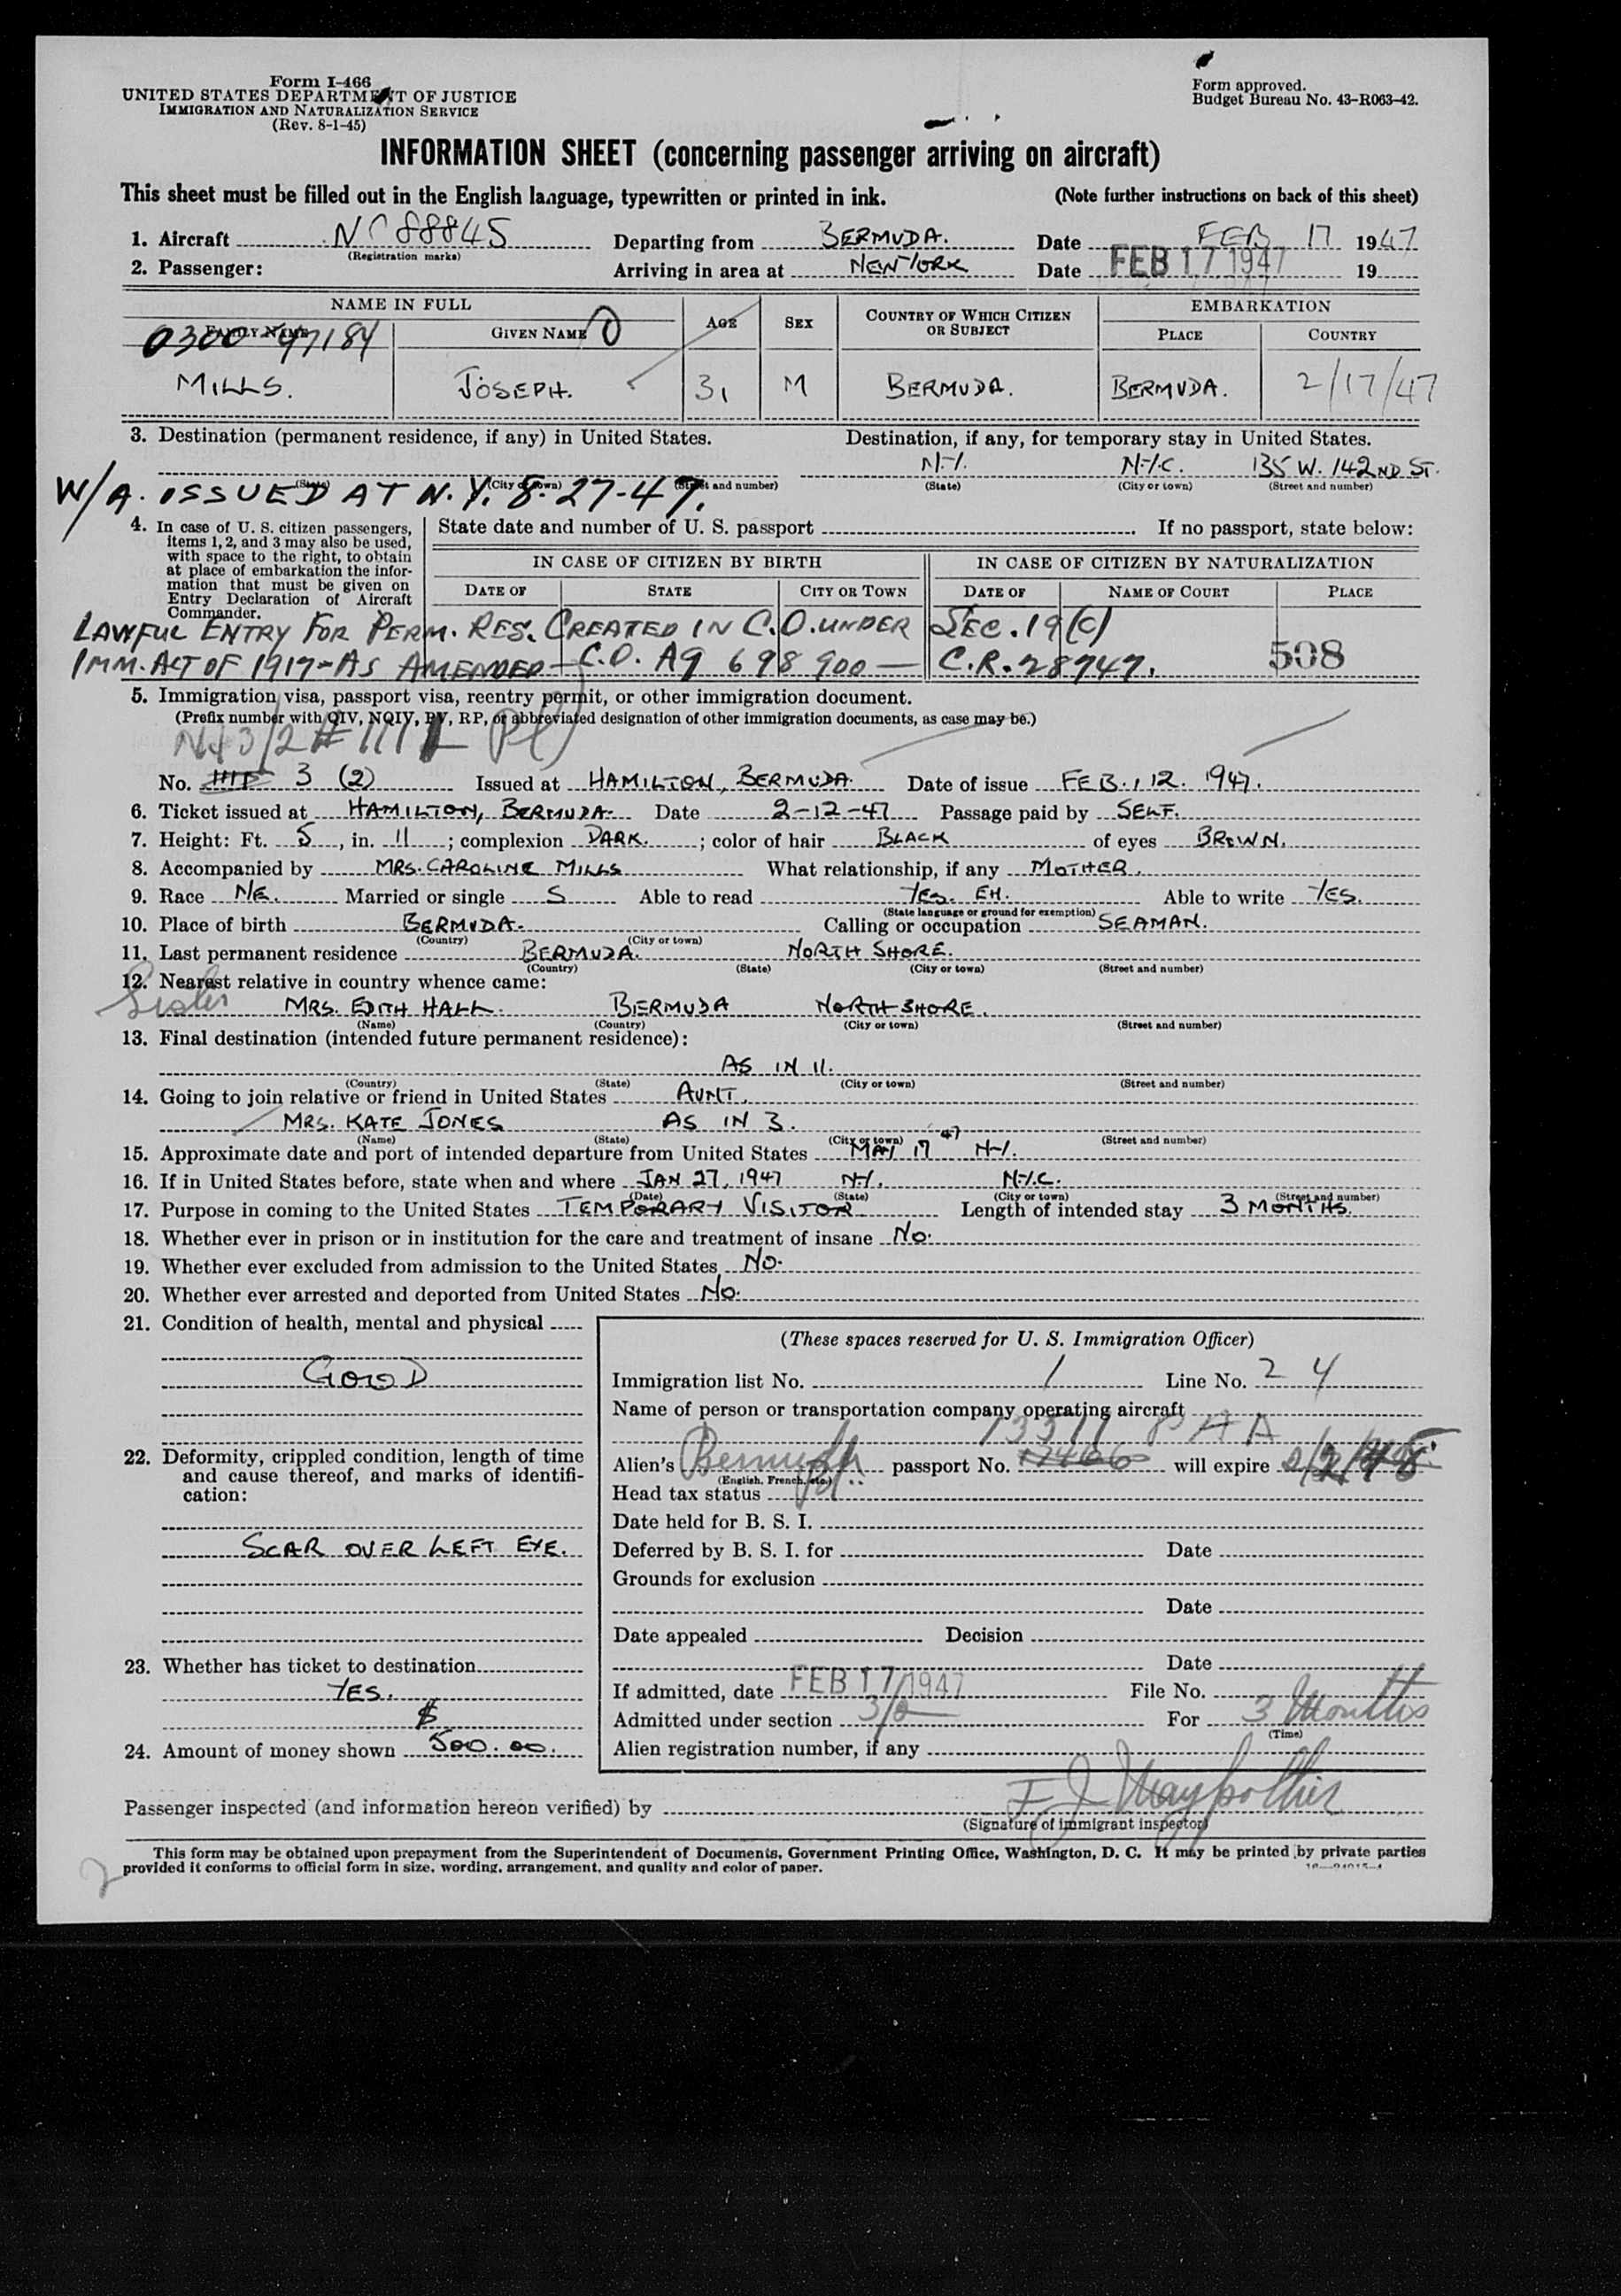 Form I-466
UNITED STATES DEPARTMENT OF JUSTICE
IMMIGRATION AND NATURALIZATION SERVICE
(Rev. 8-1-45)
Form approved.
Budget Bureau No. 43-R063-42.
INFORMATION SHEET (concerning passenger arriving on aircraft)
This sheet must be filled out in the English language, typewritten or printed in ink. (Note further instructions on back of this sheet)
1. Aircraft NC 88845 Departing from BERMUDA. Date FEB 17 1947
(Registration marks)
2. Passenger: Arriving in area at NEW YORK Date FEB 17 1947 19
NAME IN FULL AGE SEX COUNTRY OF WHICH CITIZEN OR SUBJECT EMBARKATION
FAMILY NAME GIVEN NAME PLACE COUNTRY
0300 47184
MILLS. JOSEPH. 31 M BERMUDA. BERMUDA. 2/17/47
3. Destination (permanent residence, if any) in United States. Destination, if any, for temporary stay in United States.
N.Y. N.Y.C. 135 W. 142ND ST.
(State) (City or town) (Street and number) (State) (City or town) (Street and number)
W/A. ISSUED AT N.Y. 8-27-47.
4. In case of U. S. citizen passengers, items 1, 2, and 3 may also be used, with space to the right, to obtain at place of embarkation the information that must be given on Entry Declaration of Aircraft Commander.
State date and number of U. S. passport If no passport, state below:
IN CASE OF CITIZEN BY BIRTH IN CASE OF CITIZEN BY NATURALIZATION
DATE OF STATE CITY OR TOWN DATE OF NAME OF COURT PLACE
LAWFUL ENTRY FOR PERM. RES. CREATED IN C.O. UNDER SEC. 19(C)
IMM. ACT OF 1917-AS AMENDED-C.O. A9 698 900- C.R. 28747. 508
5. Immigration visa, passport visa, reentry permit, or other immigration document.
(Prefix number with QIV, NQIV, PV, RP, or abbreviated designation of other immigration documents, as case may be.)
No. 3 (2) Issued at HAMILTON, BERMUDA. Date of issue FEB., 12. 1947.
6. Ticket issued at HAMILTON, BERMUDA. Date 2-12-47 Passage paid by SELF.
7. Height: Ft. 5, in. 11; complexion DARK.; color of hair BLACK of eyes BROWN.
8. Accompanied by MRS. CAROLINE MILLS What relationship, if any MOTHER.
9. Race NE. Married or single S Able to read YES. EH. Able to write YES.
(State language or ground for exemption)
10. Place of birth BERMUDA. Calling or occupation SEAMAN.
(Country) (City or town)
11. Last permanent residence BERMUDA. NORTH SHORE.
(Country) (State) (City or town) (Street and number)
12. Nearest relative in country whence came:
Sister MRS. EDITH HALL. BERMUDA NORTH SHORE.
(Name) (Country) (City or town) (Street and number)
13. Final destination (intended future permanent residence):
AS IN 11.
(Country) (State) (City or town) (Street and number)
14. Going to join relative or friend in United States AUNT.
MRS. KATE JONES AS IN 3.
(Name) (State) (City or town) (Street and number)
15. Approximate date and port of intended departure from United States MAY 17 47 N.Y.
16. If in United States before, state when and where JAN 27, 1947 N.Y. N.Y.C.
(Date) (State) (City or town) (Street and number)
17. Purpose in coming to the United States TEMPORARY VISITOR. Length of intended stay 3 MONTHS.
18. Whether ever in prison or in institution for the care and treatment of insane NO.
19. Whether ever excluded from admission to the United States NO.
20. Whether ever arrested and deported from United States NO.
21. Condition of health, mental and physical
GOOD
22. Deformity, crippled condition, length of time and cause thereof, and marks of identification:
SCAR OVER LEFT EYE.
23. Whether has ticket to destination
YES.
24. Amount of money shown $500.00.
(These spaces reserved for U. S. Immigration Officer)
Immigration list No. 1 Line No. 24
Name of person or transportation company operating aircraft
13511 PAA
Alien's Bermuda passport No. will expire
(English, French, etc.)
Head tax status
Date held for B. S. I.
Deferred by B. S. I. for Date
Grounds for exclusion
Date
Date appealed Decision
Date
If admitted, date FEB 17 1947 File No.
Admitted under section 3/2 For 3 Months
(Time)
Alien registration number, if any
Passenger inspected (and information hereon verified) by
(Signature of immigrant inspector)
This form may be obtained upon prepayment from the Superintendent of Documents, Government Printing Office, Washington, D. C. It may be printed by private parties
provided it conforms to official form in size, wording, arrangement, and quality and color of paper.
2